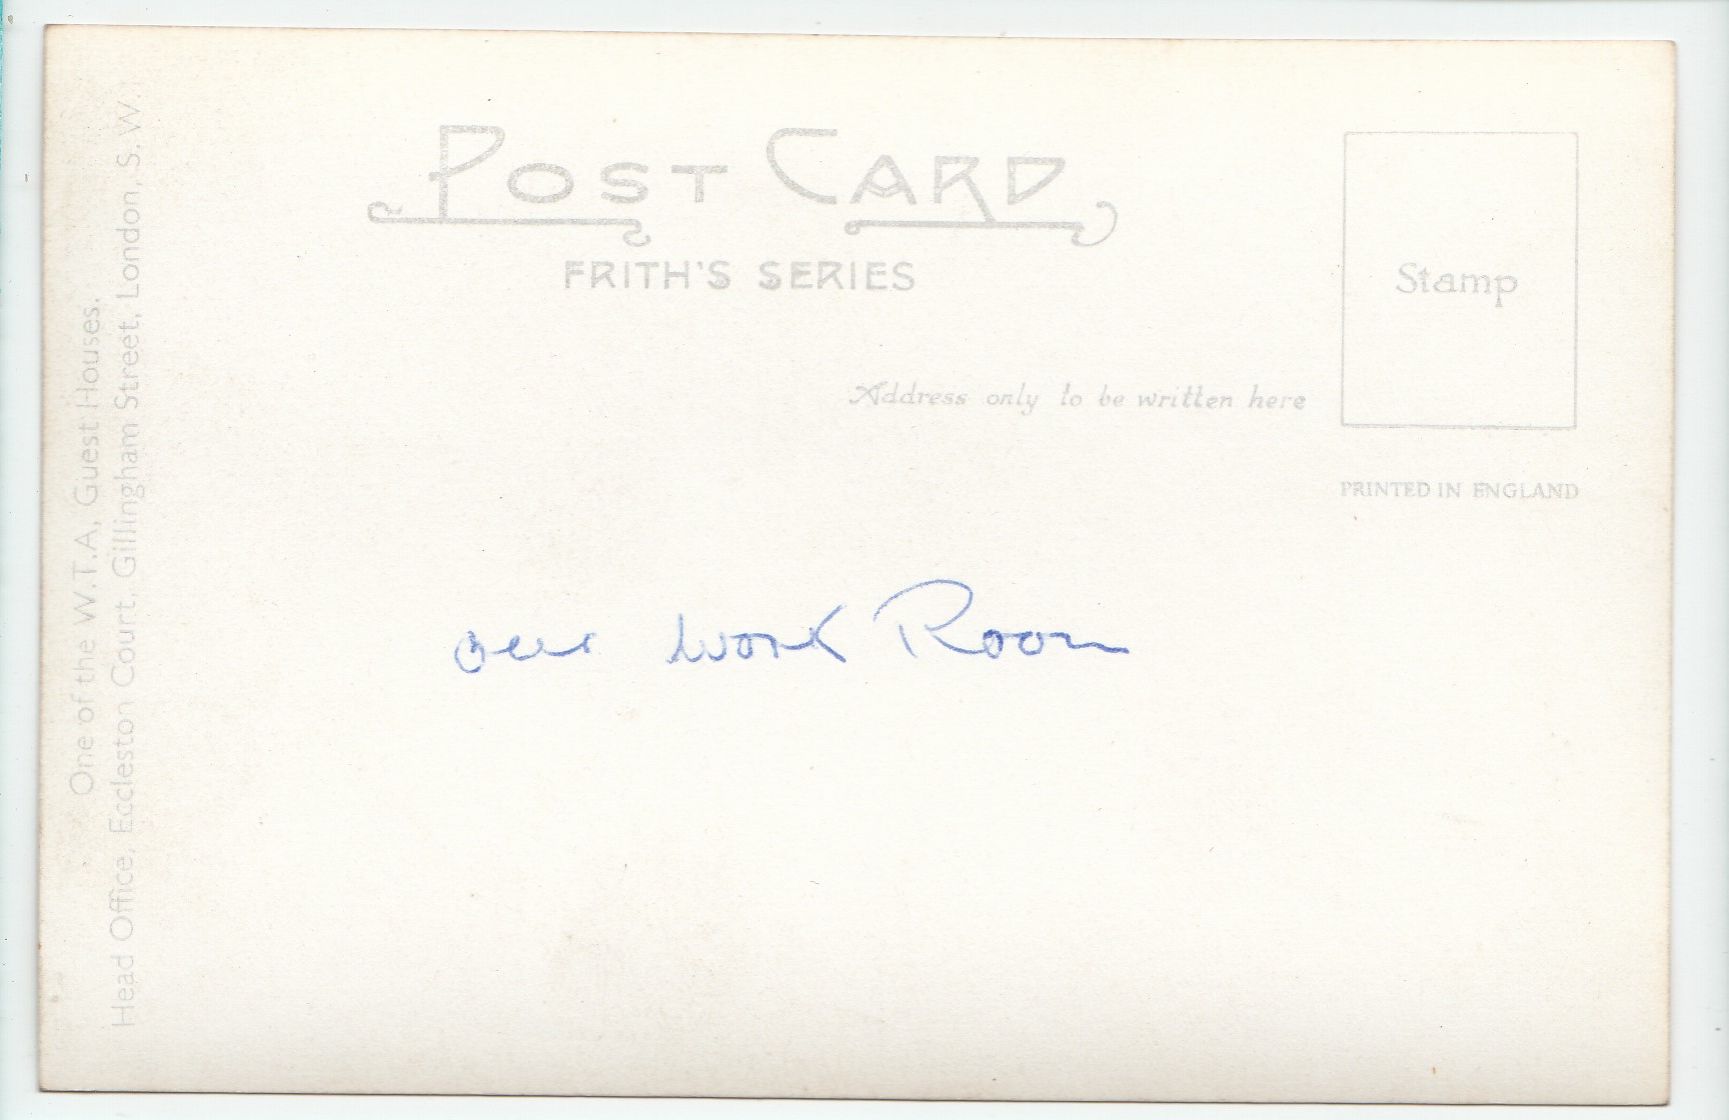 POST CARD
FRITH'S SERIES
Stamp
Address only to be written here
PRINTED IN ENGLAND
our work Room
One of the W.T.A, Guest Houses.
Head Office, Eccleston Court, Gillingham Street, London, S. W.